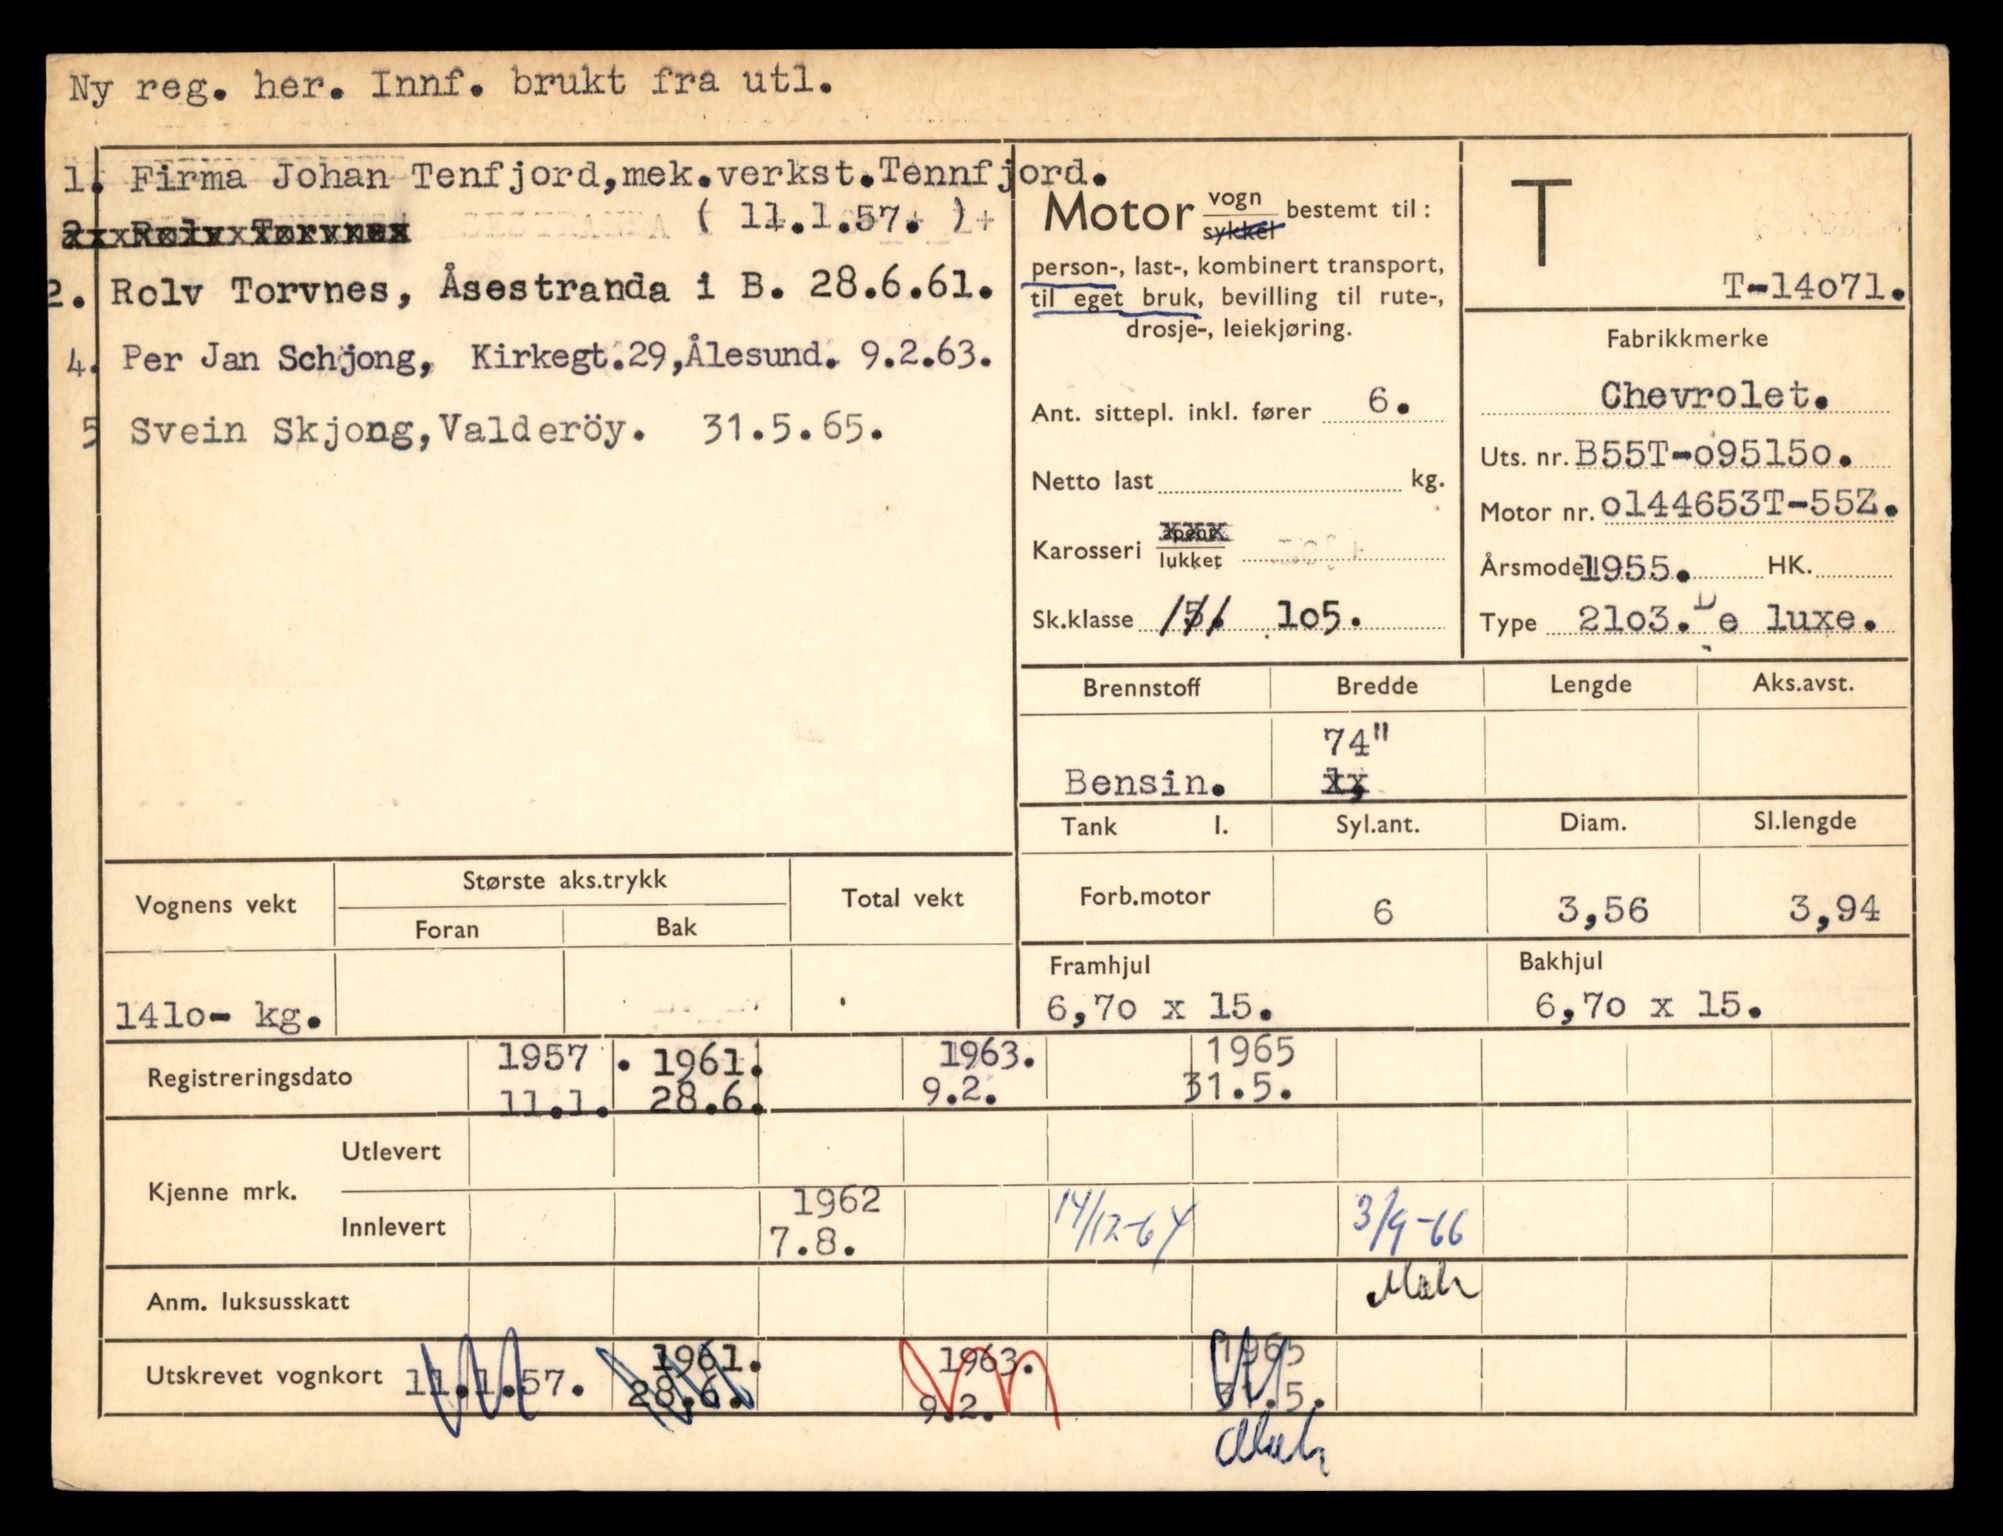 Ny reg. her. Innf. brukt fra utl.
1. Firma Johan Tenfjord,mek.verkst.Tennfjord.
2. Rolv Torvnes
( 11.1.57. )+
2. Rolv Torvnes, Åsestranda i B. 28.6.61.
4. Per Jan Schjong, Kirkegt.29,Ålesund. 9.2.63.
5 Svein Skjong,Valderöy. 31.5.65.
Motor vogn sykkel bestemt til:
person-, last-, kombinert transport,
til eget bruk, bevilling til rute-,
drosje-, leiekjøring.
Ant. sittepl. inkl. fører 6.
Netto last kg.
Karosseri åpent lukket
Sk.klasse 151. 1o5.
T
T-14o71.
Fabrikkmerke
Chevrolet.
Uts. nr. B55T-o9515o.
Motor nr. o144653T-55Z.
Årsmodell 1955. HK.
Type 21o3. De luxe.
Brennstoff Bredde Lengde Aks.avst.
74"
Bensin.
Tank l. Syl.ant. Diam. Sl.lengde
Forb.motor 6 3,56 3,94
Framhjul Bakhjul
6,7o x 15. 6,7o x 15.
Vognens vekt Største aks.trykk Total vekt
Foran Bak
141o- kg.
Registreringsdato 1957. 1961. 1963. 1965
11.1. 28.6. 9.2. 31.5.
Kjenne mrk. Utlevert
Innlevert 1962 14/12-64 3/9-66
7.8.
Anm. luksusskatt
Utskrevet vognkort 11.1.57. 1961. 1963. 1965
28.6. 9.2. 31.5.